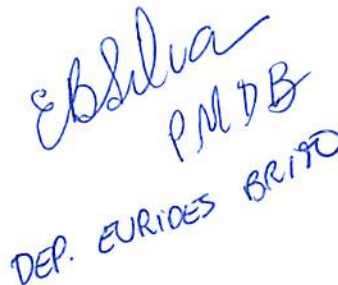 EBSilva
PMDB
DEP. EURIDES BRITO